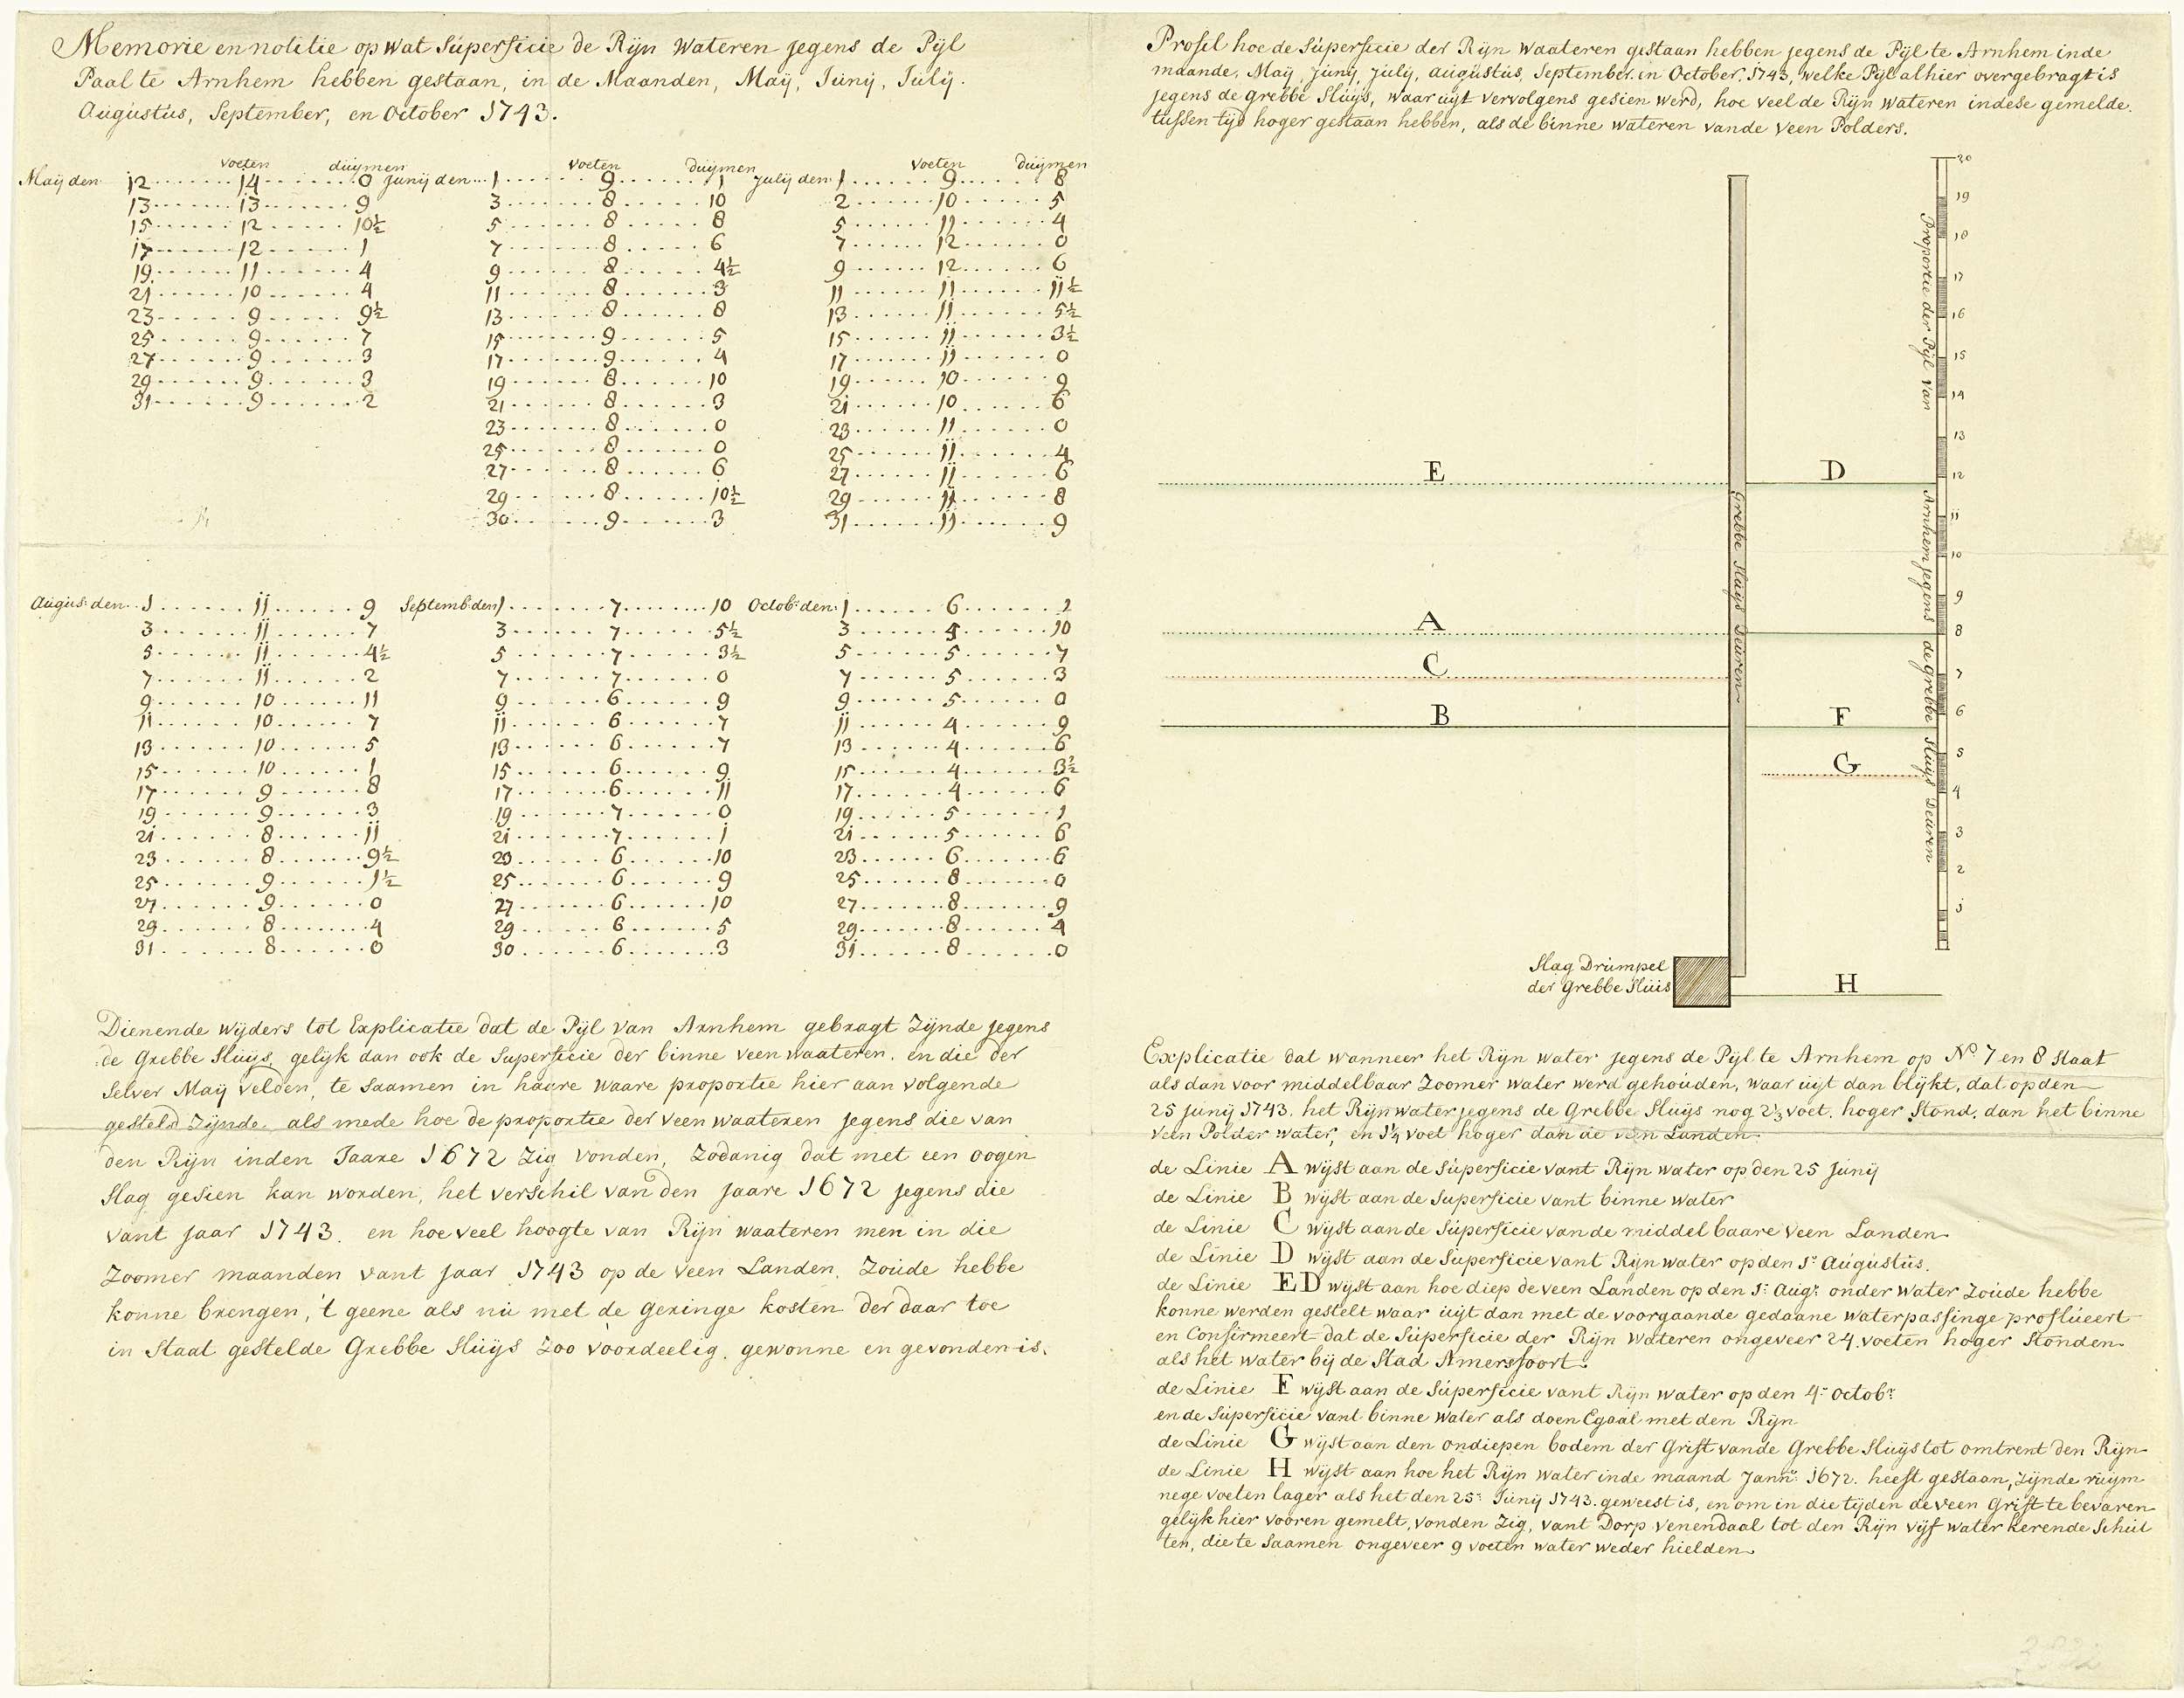 Memorie en notitie op wat Súperficie de Rijn Wateren jegens de Pijl
Paal te Arnhem hebben gestaan, in de Maanden, Maÿ, Junij, Julij.
Augustus, September, en October 1743.
voeten duijmen voeten duijmen voeten duijmen
Maij den 12 14 0 Junij den 1 9 1 Julij den 1 9 8
13 13 9 3 8 10 2 10 5
15 12 10½ 5 8 8 5 11 4
17 12 1 7 8 6 7 12 0
19 11 4 9 8 4½ 9 12 6
21 10 4 11 8 3 11 11 11½
23 9 9½ 13 8 8 13 11 5½
25 9 7 15 9 5 15 11 3½
27 9 3 17 9 4 17 11 0
29 9 3 19 8 10 19 10 9
31 9 2 21 8 3 21 10 6
23 8 0 23 11 0
25 8 0 25 11 4
27 8 6 27 11 6
29 8 10½ 29 11 8
30 9 3 31 11 9
Augus: den 1 11 9 Septemb: den 1 7 10 Octob: den 1 6 1
3 11 7 3 7 5½ 3 5 10
5 11 4½ 5 7 3½ 5 5 7
7 11 2 7 7 0 7 5 3
9 10 11 9 6 9 9 5 0
11 10 7 11 6 7 11 4 9
13 10 5 13 6 7 13 4 6
15 10 1 15 6 9 15 4 3½
17 9 8 17 6 11 17 4 6
19 9 3 19 7 0 19 5 1
21 8 11 21 7 1 21 5 6
23 8 9½ 23 6 10 23 6 6
25 9 1½ 25 6 9 25 8 0
27 9 0 27 6 10 27 8 9
29 8 4 29 6 5 29 8 4
31 8 0 30 6 3 31 8 0
Dienende wijders tot Explicatie dat de Pijl van Arnhem gebragt Zijnde jegens
de Grebbe Sluijs, gelijk dan ook de Superficie der binne veen waateren, en die der
Selver Maij velden, te saamen in haare waare proportie hier aan volgende
gesteld Zijnde, als mede hoe de proportie der veen waateren jegens die van
den Rijn inden Jaare 1672 Zig vonden, Zodanig dat met een oogen
slag gesien kan worden, het verschil van den jaare 1672 jegens die
vant jaar 1743. en hoe veel hoogte van Rijn waateren men in die
Zoomer maanden vant jaar 1743 op de veen Landen, Zoude hebbe
konne brengen, 't geene als nu met de geringe kosten der daar toe
in staat gestelde Grebbe Sluijs Zoo voordeelig gewonne en gevonden is.
Profil hoe de Súperficie der Rijn waateren gestaan hebben jegens de Pijl te Arnhem inde
maande, Maij, Junij, Julij, Augustus, September, en October, 1743, welke Pijl alhier overgebragt is
jegens de grebbe Sluijs, waar uijt vervolgens gesien werd, hoe veel de Rijn wateren indese gemelde
tussen tijd hoger gestaan hebben, als de binne wateren vande veen Polders.
20
19
18
17
16
15
14
13
12
11
10
9
8
7
6
5
4
3
2
1
Proportie der Pijl van Arnhem jegens de Grebbe Sluijs Deuren
Grebbe Sluijs Deuren
E D
A
C
B F
G
Slag Drumpel
der Grebbe Sluis
H
Explicatie dat wanneer het Rijn water jegens de Pijl te Arnhem op No. 7 en 8 staat
als dan voor middelbaar Zoomer water werd gehouden, waar uijt dan blijkt, dat op den
25 Junij 1743. het Rijn water jegens de Grebbe Sluijs nog 2⅓ voet. hoger Stond, dan het binne
veen Polder water, en 1¼ voet hoger dan de veen Landen
de Linie A wijst aan de Súperficie vant Rijn water op den 25 Junij
de Linie B wijst aan de Superficie vant binne water
de Linie C wijst aan de Súperficie van de middelbaare veen Landen
de Linie D wijst aan de Súperficie vant Rijn water op den 1: Augustus.
de Linie ED wijst aan hoe diep de veen Landen op den 1: Augs: onder water Zoude hebbe
konne werden gestelt waar uijt dan met de voorgaande gedaane waterpassinge proflúeert
en Confirmeert dat de Súperficie der Rijn wateren ongeveer 24 voeten hoger stonden
als het water bij de Stad Amersfoort.
de Linie F wijst aan de Súperficie vant Rijn water op den 4: octobr:
en de Súperficie vant binne water als doen Egaal met den Rijn
de Linie G wijst aan den ondiepen bodem der Grift vande Grebbe Sluijs tot omtrent den Rijn
de Linie H wijst aan hoe het Rijn water inde maand Jannr: 1672. heeft gestaan, zijnde ruijm
nege voeten lager als het den 25: Junij 1743. geweest is, en om in die tijden de veen Grift te bevaren
gelijk hier vooren gemelt, vonden Zig, vant Dorp venendaal tot den Rijn vijf water kerende Schut
ten, die te saamen ongeveer 9 voeten water weder hielden